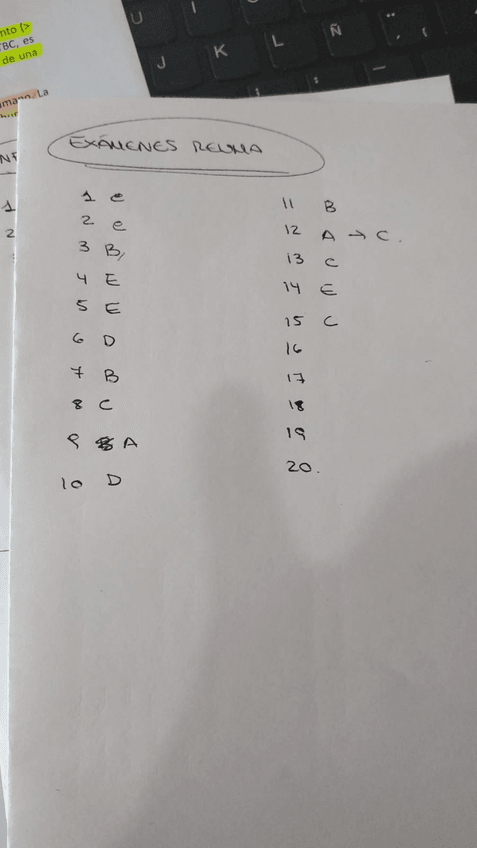 nto (>
TBC, es
de una
umano. La
U I
J K L Ñ
EXÁMENES REUMA
1 e
2 e
3 B,
4 E
5 E
6 D
7 B
8 C
9 A
10 D
11 B
12 A → C.
13 C
14 E
15 C
16
17
18
19
20.
1
2